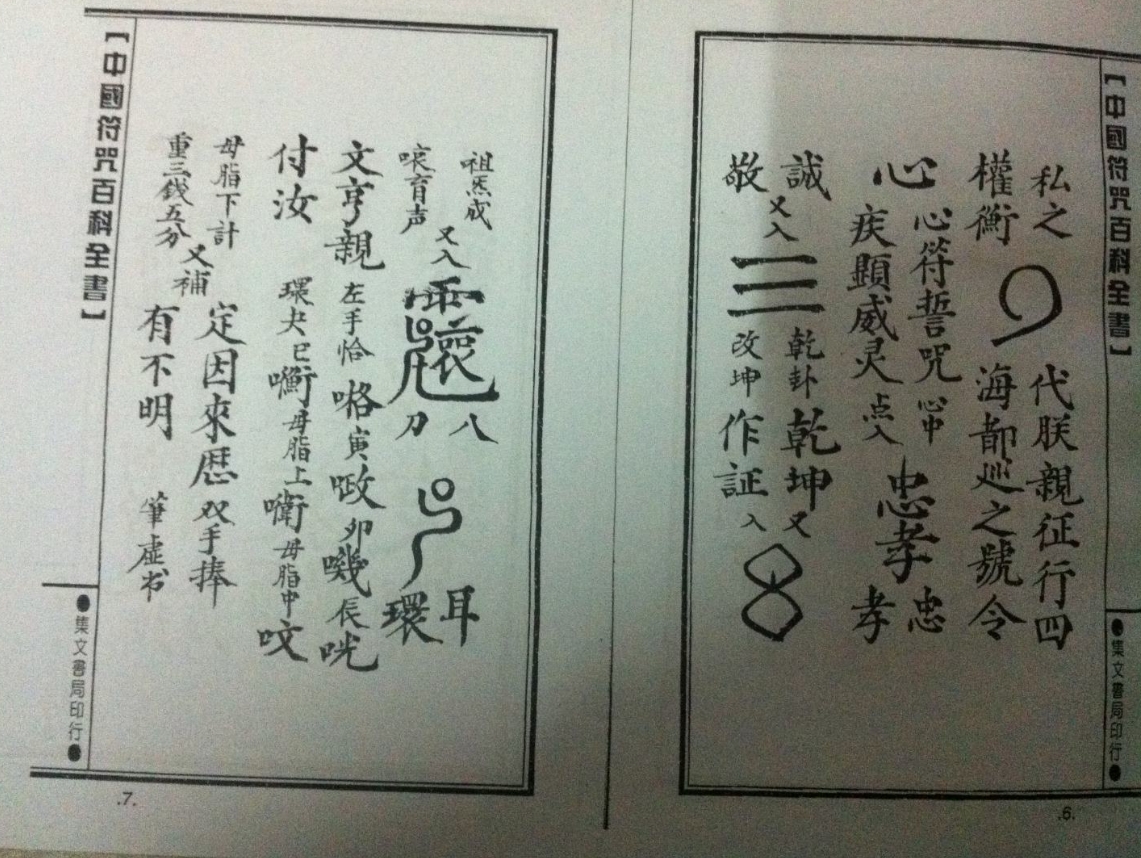 【中國符咒百科全書】
●集文書局印行●
私之
權衡
代朕親征行四
海都巡之號令
心
心符誓咒
疾顯威灵
心中
点入
忠孝
忠
孝
誠
敬
又入
三
乾卦
改坤
乾坤
作証
又
入
.6.
祖炁成
唉育声
又入
八
刀
耳
環
文亨親
付汝
左手恰
寅
卯
辰
咣
母脂上
母脂中
呅
母脂下計
重三錢五分
又補
定因來歷
有不明
双手捧
筆虛书
【中國符咒百科全書】
●集文書局印行●
.7.